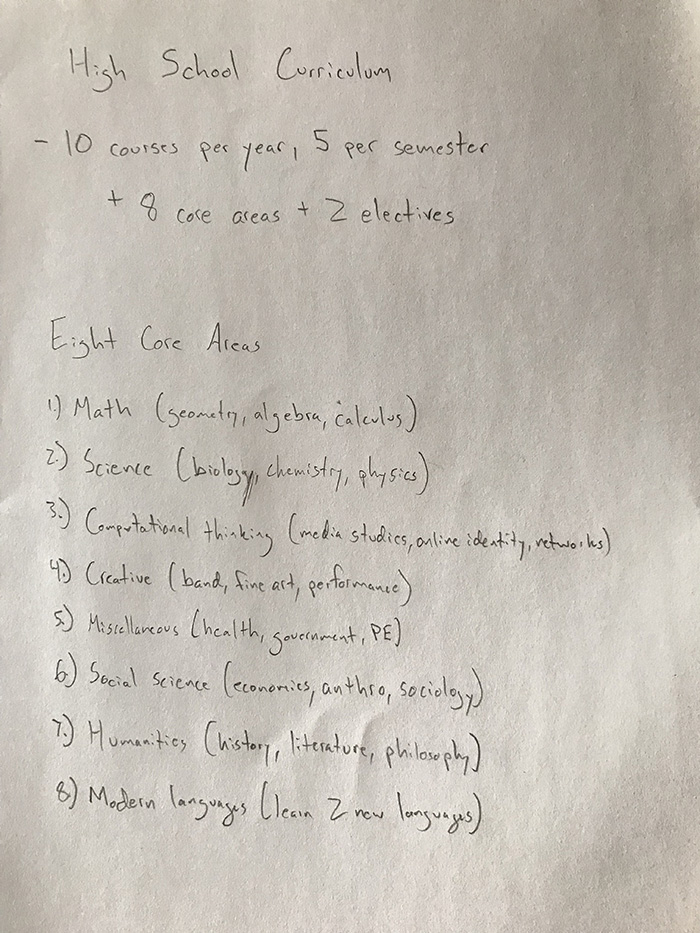 High School Curriculum
- 10 courses per year, 5 per semester
+ 8 core areas + 2 electives
Eight Core Areas
1.) Math (geometry, algebra, calculus)
2.) Science (biology, chemistry, physics)
3.) Computational thinking (media studies, online identity, networks)
4.) Creative (band, fine art, performance)
5.) Miscellaneous (health, government, PE)
6.) Social science (economics, anthro, sociology)
7.) Humanities (history, literature, philosophy)
8.) Modern languages (learn 2 new languages)